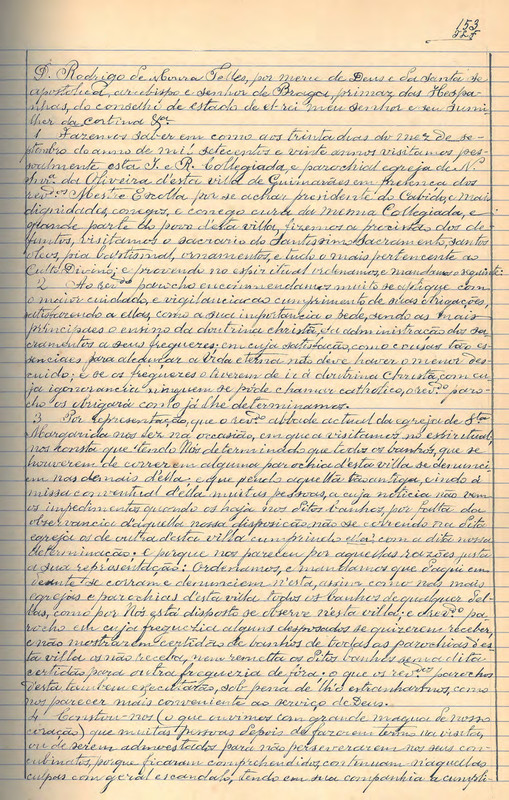 153
D. Rodrigo de Moura Telles, por merce de Deus e da Santa Se
apostolica, arcebispo e senhor de Braga, primaz das Hespa-
nhas, do conselho de estado de el-rei meu senhor e seu sumi-
lher da cortina &ª
1 Fazemos saber em como aos trinta dias do mez de se-
ptembro do anno de mil setecentos e vinte annos visitamos pes-
soalmente esta I. e R. Collegiada, e parochial egreja de N.
Snrª da Oliveira d'esta villa de Guimarães em presença dos
revdos Mestre Escolla por se achar presidente do Cabido, e mais
dignidades, conegos, e conego cura da mesma Collegiada, e
grande parte do povo desta villa, fizemos a procissão dos de-
funtos, visitamos o sacrario do Santissimo Sacramento, santos
oleos, pia baptismal, ornamentos, e tudo o mais pertencente ao
Culto Divino; e provendo no espiritual ordenamos, e mandamos o seguinte:
2 Ao revdo parocho encommendamos muito se aplique com
o maior cuidado, e vigilancia ao cumprimento de suas obrigações,
satisfazendo a ellas, como a sua importancia o pede, sendo as mais
principaes o ensino da doutrina christã, e a administração dos sa-
cramentos a seus freguezes; em cuja satisfação, como cousas tão es-
senciaes para alcançar a vida eterna não deve haver o menor des-
cuido; e se os freguezes o tiverem de ir á doutrina Christã, com cu-
ja ignorancia ninguem se pode chamar catholico, o revdo paro-
cho os obrigará como já lhe determinamos.
3 Por representação, que o revdo abbade actual da egreja de Stª
Margarida nos fez na occasião, em que a visitamos no espiritual,
nos consta que tendo Nós determinado que todos os banhos, que se
houverem de correr em alguma parochia d'esta villa se denunci-
em nas demais d'ella, e que pena aquella tão antiga, e indo á
missa conventual d'ella muitas pessoas, a cuja noticia não vem
os impedimentos quando os haja nos ditos banhos, por falta da
observancia d'aquella nossa disposição, não se correndo na dita
egreja os de outra d'esta villa cumprindo ella com a dita nossa
determinação: e porque nos pareceu por aquellas razões, justa
a sua representação: Ordenamos, e mandamos que d'aqui em
deante se corram e denunciem n'esta, assim como nas mais
egrejas e parochias d'esta villa todos os banhos de qualquer del-
las, como por Nós está disposto se observe nesta villa; e o revdo pa-
rocho em cuja freguezia alguns desposados se quizerem receber,
e não mostrarem certidão de banhos de todas as parochias d'es-
ta villa os não receba, nem remetta os ditos banhos sem a dita
certidão para outra freguezia de fóra: o que os revdos parochos
desta tambem executarão, sob pena de lh'o estranharmos, como
nos parecer mais conveniente ao serviço de Deus.
4 Constou-nos (o que ouvimos com grande magua de nosso
coração) que muitas pessoas depois de fazerem termo na visita,
ou de serem admoestados para não perseverarem nos seus con-
cubinatos, porque ficaram comprehendidos, continuam naquellas
culpas com geral escandalo, tendo em sua companhia a cumpli-